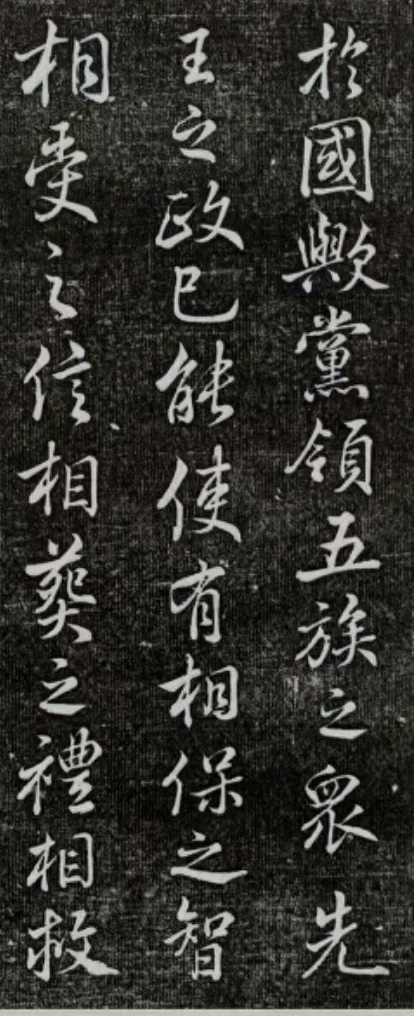 於國歟黨領五族之眾先
王之政已能使有相保之智
相受之信相葬之禮相救